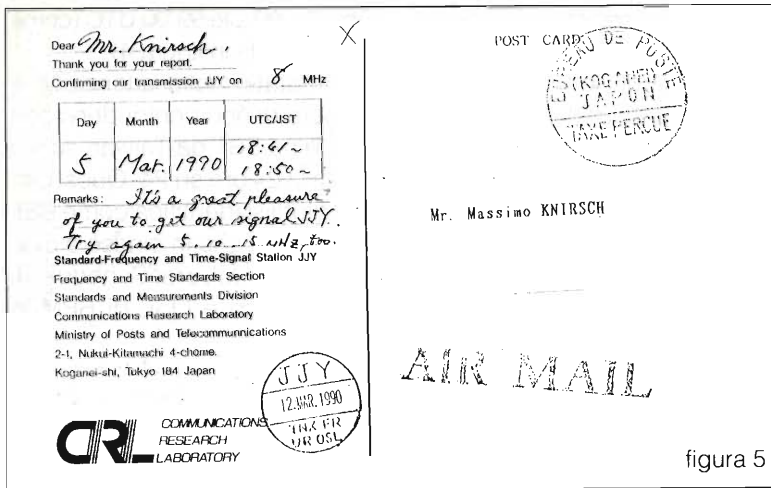 Dear Mr. Knirsch.
Thank you for your report.
Confirming our transmission JJY on 8 MHz
Day Month Year UTC/JST
5 Mar. 1990 18:41~ 18:50~
Remarks: It's a great pleasure
of you to get our signal JJY.
Try again 5. 10. 15 MHz, too.
Standard-Frequency and Time-Signal Station JJY
Frequency and Time Standards Section
Standards and Measurements Division
Communications Research Laboratory
Ministry of Posts and Telecommunnications
2-1, Nukui-Kitamachi 4-chome.
Koganei-shi, Tokyo 184 Japan
JJY
12.MAR.1990
TNX FR
UR QSL
CRL COMMUNICATIONS
RESEARCH
LABORATORY
X
POST CARD
BUREAU DE POSTE
(KOGANEI)
JAPON
TAXE PERCUE
Mr. Massimo KNIRSCH
AIR MAIL
figura 5